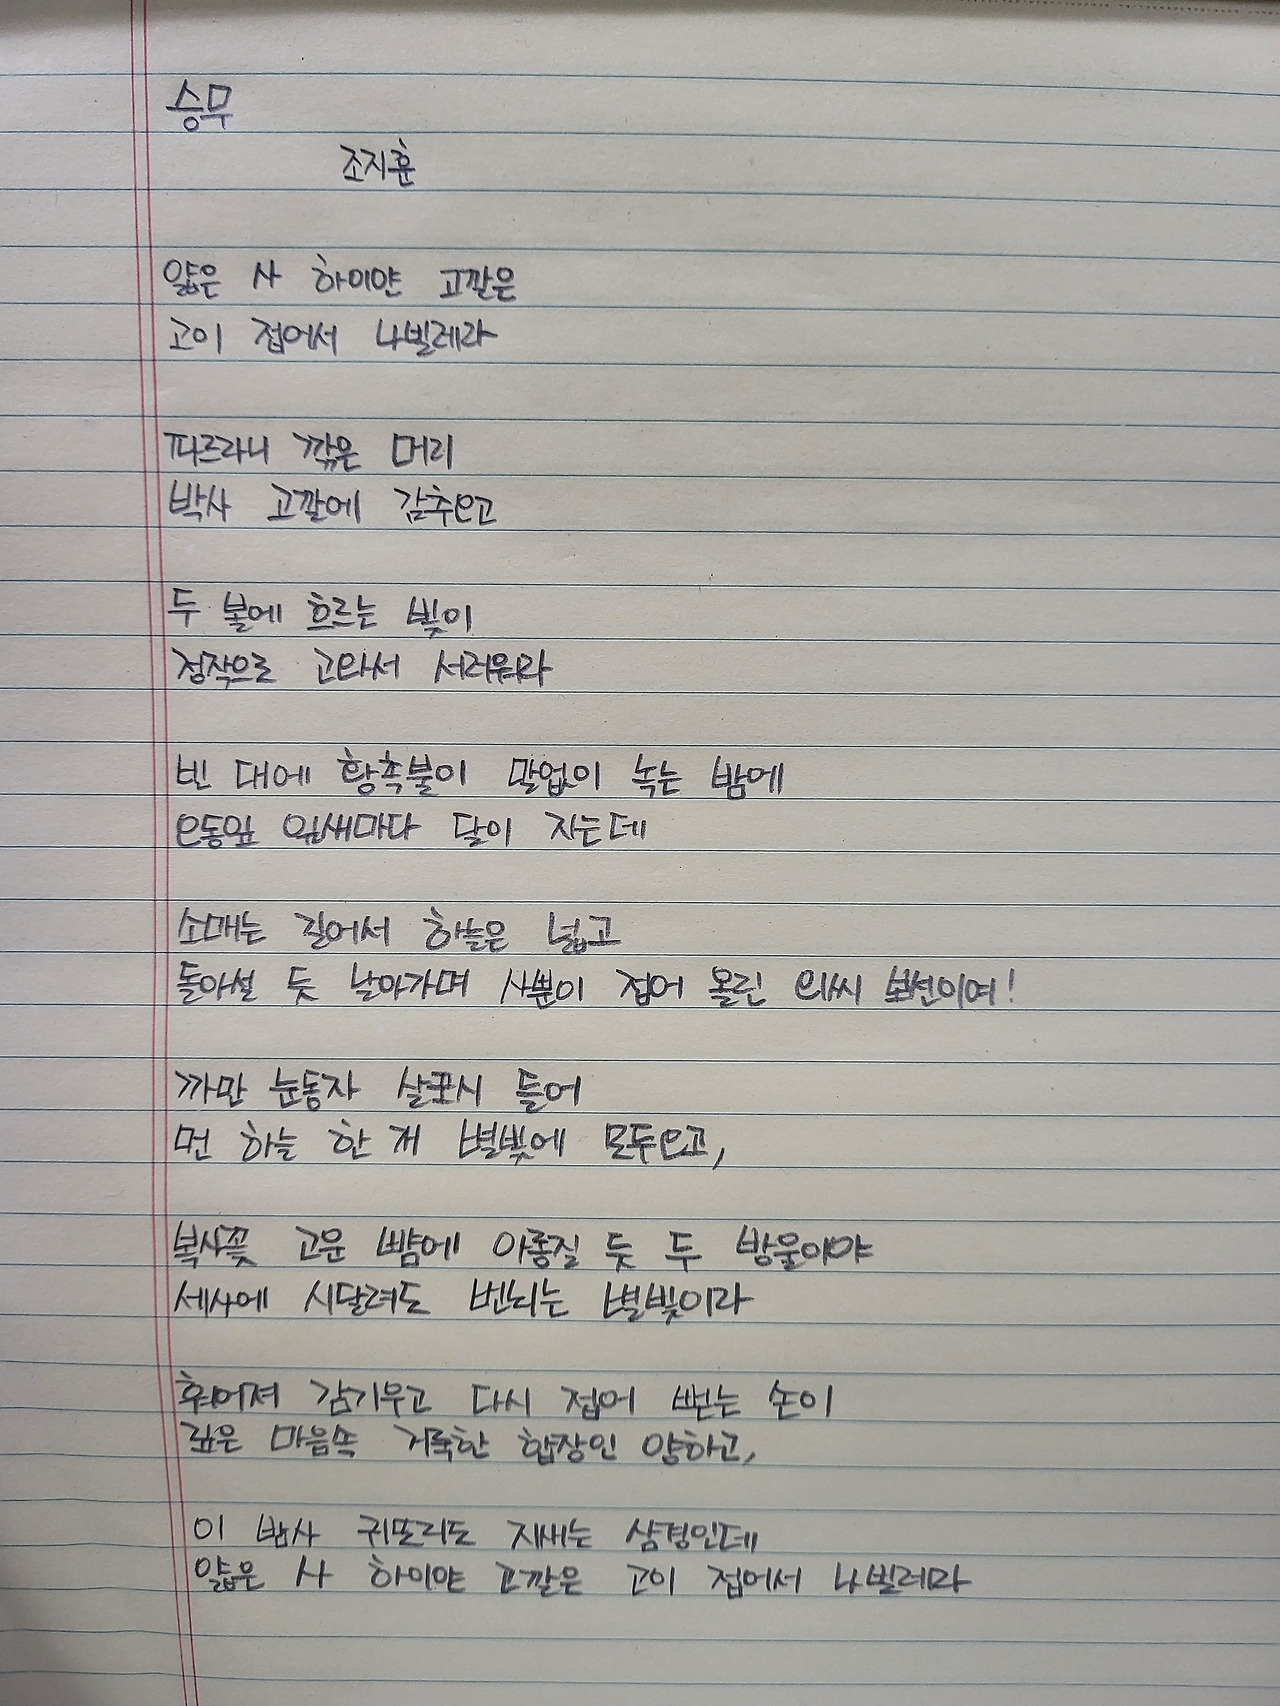 승무
조지훈
얇은 사 하이얀 고깔은
고이 접어서 나빌레라
파르라니 깎은 머리
박사 고깔에 감추오고
두 볼에 흐르는 빛이
정작으로 고와서 서러워라
빈 대에 황촉불이 말없이 녹는 밤에
오동잎 잎새마다 달이 지는데
소매는 길어서 하늘은 넓고
돌아설 듯 날아가며 사뿐이 접어 올린 외씨 보선이여!
까만 눈동자 살포시 들어
먼 하늘 한 개 별빛에 모두오고,
복사꽃 고운 뺨에 아롱질 듯 두 방울이야
세사에 시달려도 번뇌는 별빛이라
휘어져 감기우고 다시 접어 뻗는 손이
깊은 마음속 거룩한 합장인 양하고,
이 밤사 귀또리도 지새는 삼경인데
얇은 사 하이얀 고깔은 고이 접어서 나빌레라